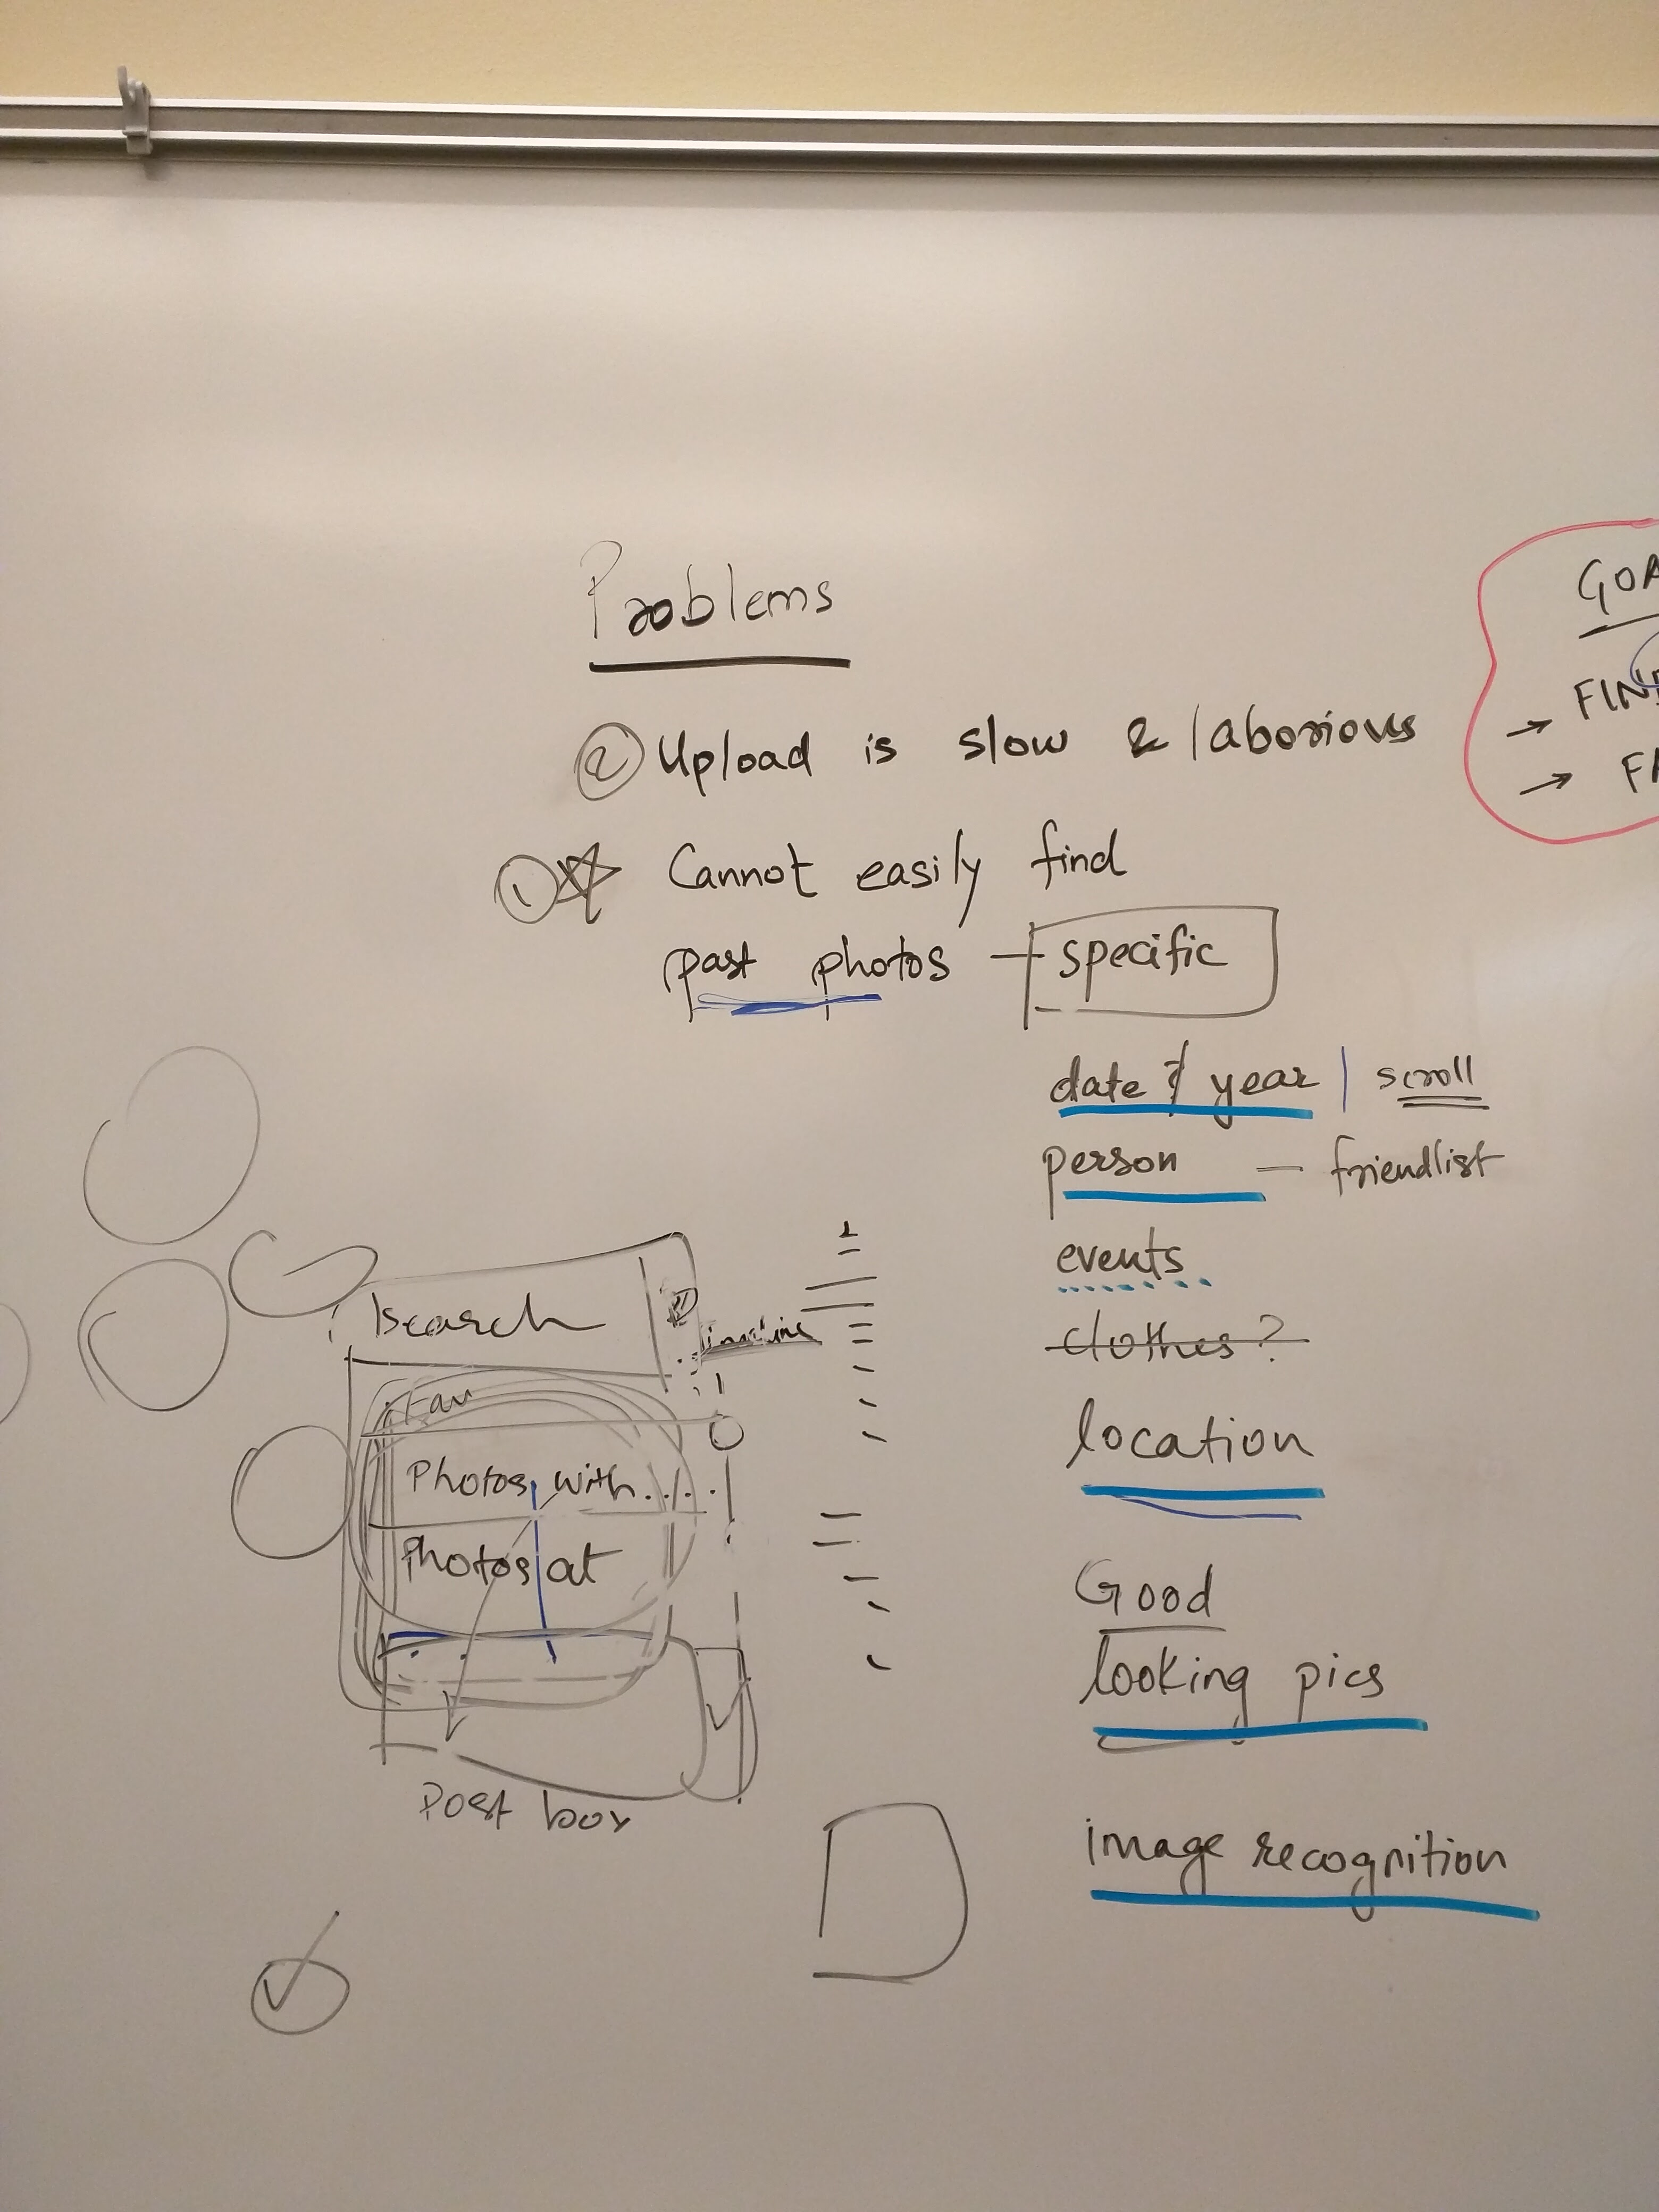 Problems
② Upload is slow & laborious
① Cannot easily find
past photos — specific
date & year | scroll
person — friendlist
events
clothes?
location
Good
looking pics
image recognition
GOA
→ FIN
→ FA
search
Photos with....
Photos at
Post box